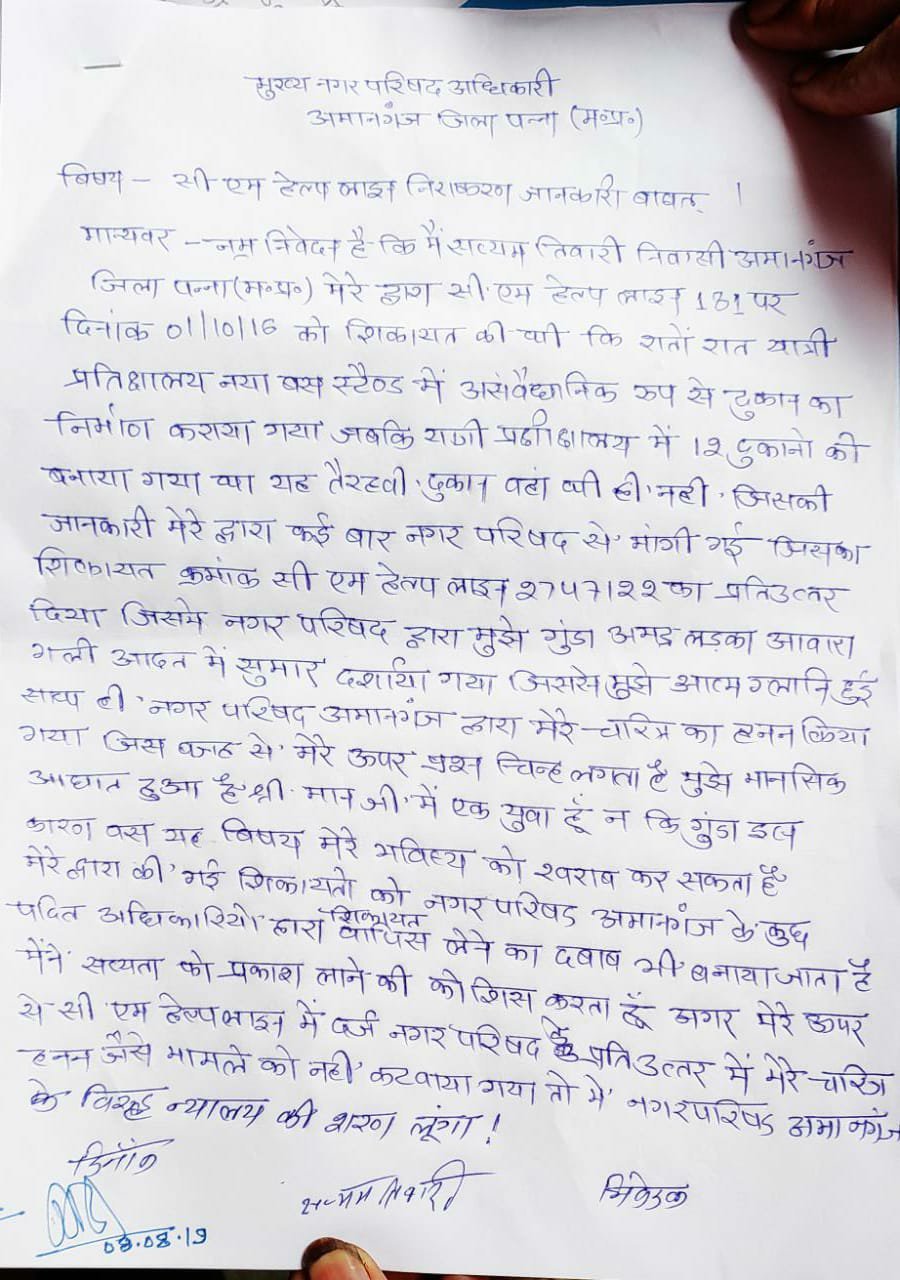 मुख्य नगर परिषद अधिकारी
अमानगंज जिला पन्ना (म॰प्र॰)
विषय - सी एम हेल्प लाइन निराकरण जानकारी बावत् !
मान्यवर - नम्र निवेदन है कि मैं सत्यम तिवारी निवासी अमानगंज
जिला पन्ना (म॰प्र॰) मेरे द्वारा सी एम हेल्प लाइन 181 पर
दिनांक 01/10/16 को शिकायत की थी कि रातों रात यात्री
प्रतिक्षालय नया बस स्टैण्ड में असंवैधानिक रुप से दुकान का
निर्माण कराया गया जबकि में 12 दुकानो को
बनाया गया था यह तैरहवी दुकान वहां थी ही नही जिसकी
जानकारी मेरे द्वारा कई बार नगर परिषद से मांगी गई जिसका
शिकायत क्रमांक सी एम हेल्प लाइन 2747122 का प्रतिउत्तर
दिया जिसमे नगर परिषद द्वारा मुझे गुंडा अभद्र लड़का आवारा
गली आदत में सुमार दर्शाया गया जिससे मुझे आत्म ग्लानि हुई
साथ ही नगर परिषद अमानगंज द्वारा मेरे चरित्र का हनन किया
गया जिस वजह से मेरे ऊपर प्रश्न चिन्ह लगता है मुझे मानसिक
आघात हुआ है श्री मान जी में एक युवा हूँ न कि गुंडा इस
कारण वस यह विषय मेरे भविष्य को खराब कर सकता है
मेरे द्वारा की गई शिकायतो को नगर परिषद अमानगंज के कुछ
पदित अधिकारियो द्वारा शिकायत वापिस लेने का दबाब भी बनाया जाता है
मैंने सत्यता को प्रकाश लाने की कोशिस करता हूँ अगर मेरे ऊपर
से सी एम हेल्प लाइन में दर्ज नगर परिषद के प्रतिउत्तर में मेरे चरित्र
हनन जैसे मामले को नही कटवाया गया तो मे नगर परिषद अमानगंज
के विरुद्ध न्यालय की शरण लूंगा !
दिनाँक
सत्यम तिवारी
08.08.19